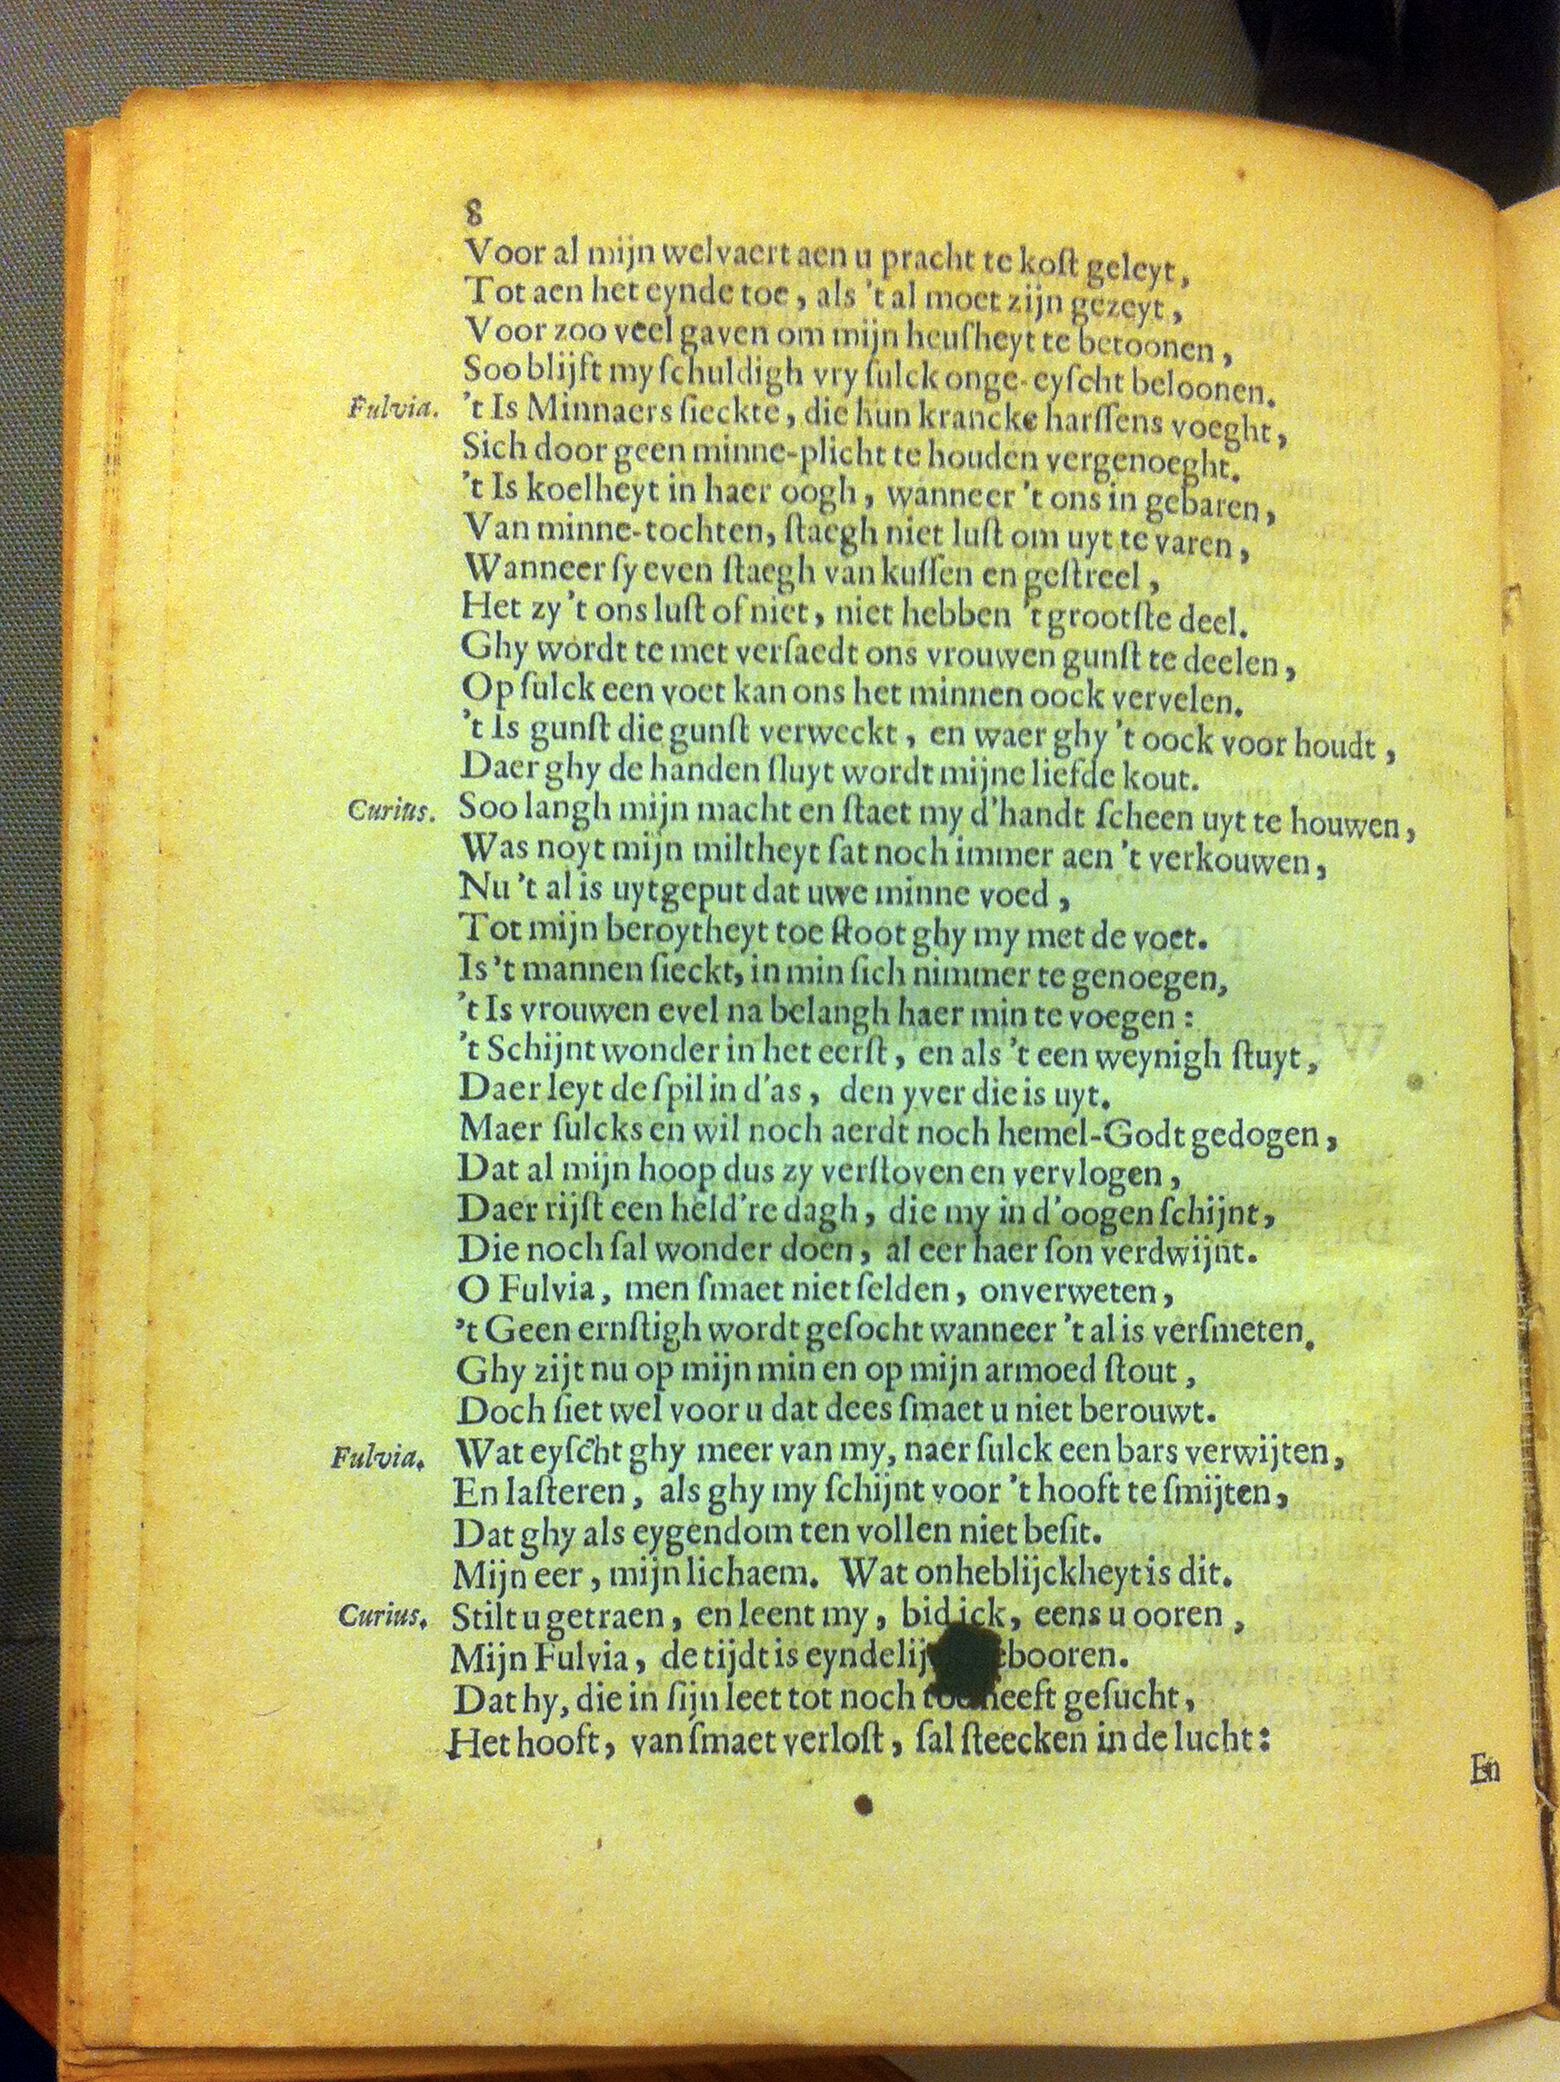 8
Voor al mijn welvaert aen u pracht te koſt geleyt,
Tot aen het eynde toe, als 't al moet zijn gezeyt,
Voor zoo veel gaven om mijn heuſheyt te betoonen,
Soo blijft my ſchuldigh vry ſulck onge-eyſcht beloonen.
Fulvia. 't Is Minnaers ſieckte, die hun krancke harſſens voeght,
Sich door geen minne-plicht te houden vergenoeght.
't Is koelheyt in haer oogh, wanneer 't ons in gebaren,
Van minne-tochten, ſtaegh niet luſt om uyt te varen,
Wanneer ſy even ſtaegh van kuſſen en geſtreel,
Het zy 't ons luſt of niet, niet hebben 't grootſte deel.
Ghy wordt te met verſaedt ons vrouwen gunſt te deelen,
Op ſulck een voet kan ons het minnen oock vervelen.
't Is gunſt die gunſt verweckt, en waer ghy 't oock voor houdt,
Daer ghy de handen ſluyt wordt mijne liefde kout.
Curius. Soo langh mijn macht en ſtaet my d'handt ſcheen uyt te houwen,
Was noyt mijn miltheyt ſat noch immer aen 't verkouwen,
Nu 't al is uytgeput dat uwe minne voed,
Tot mijn beroytheyt toe ſtoot ghy my met de voet.
Is 't mannen ſieckt, in min ſich nimmer te genoegen,
't Is vrouwen evel na belangh haer min te voegen:
't Schijnt wonder in het eerſt, en als 't een weynigh ſtuyt,
Daer leyt de ſpil in d'as, den yver die is uyt.
Maer ſulcks en wil noch aerdt noch hemel-Godt gedogen,
Dat al mijn hoop dus zy verſtoven en vervlogen,
Daer rijſt een held're dagh, die my in d'oogen ſchijnt,
Die noch ſal wonder doen, al eer haer ſon verdwijnt.
O Fulvia, men ſmaet niet ſelden, onverweten,
't Geen ernſtigh wordt geſocht wanneer 't al is verſmeten.
Ghy zijt nu op mijn min en op mijn armoed ſtout,
Doch ſiet wel voor u dat dees ſmaet u niet berouwt.
Fulvia. Wat eyſcht ghy meer van my, naer ſulck een bars verwijten,
En laſteren, als ghy my ſchijnt voor 't hooft te ſmijten,
Dat ghy als eygendom ten vollen niet beſit.
Mijn eer, mijn lichaem. Wat onheblijckheyt is dit.
Curius. Stilt u getraen, en leent my, bid ick, eens u ooren,
Mijn Fulvia, de tijdt is eyndelij booren.
Dat hy, die in ſijn leet tot noch toe heeft geſucht,
Het hooft, van ſmaet verloſt, ſal ſteecken in de lucht:
En